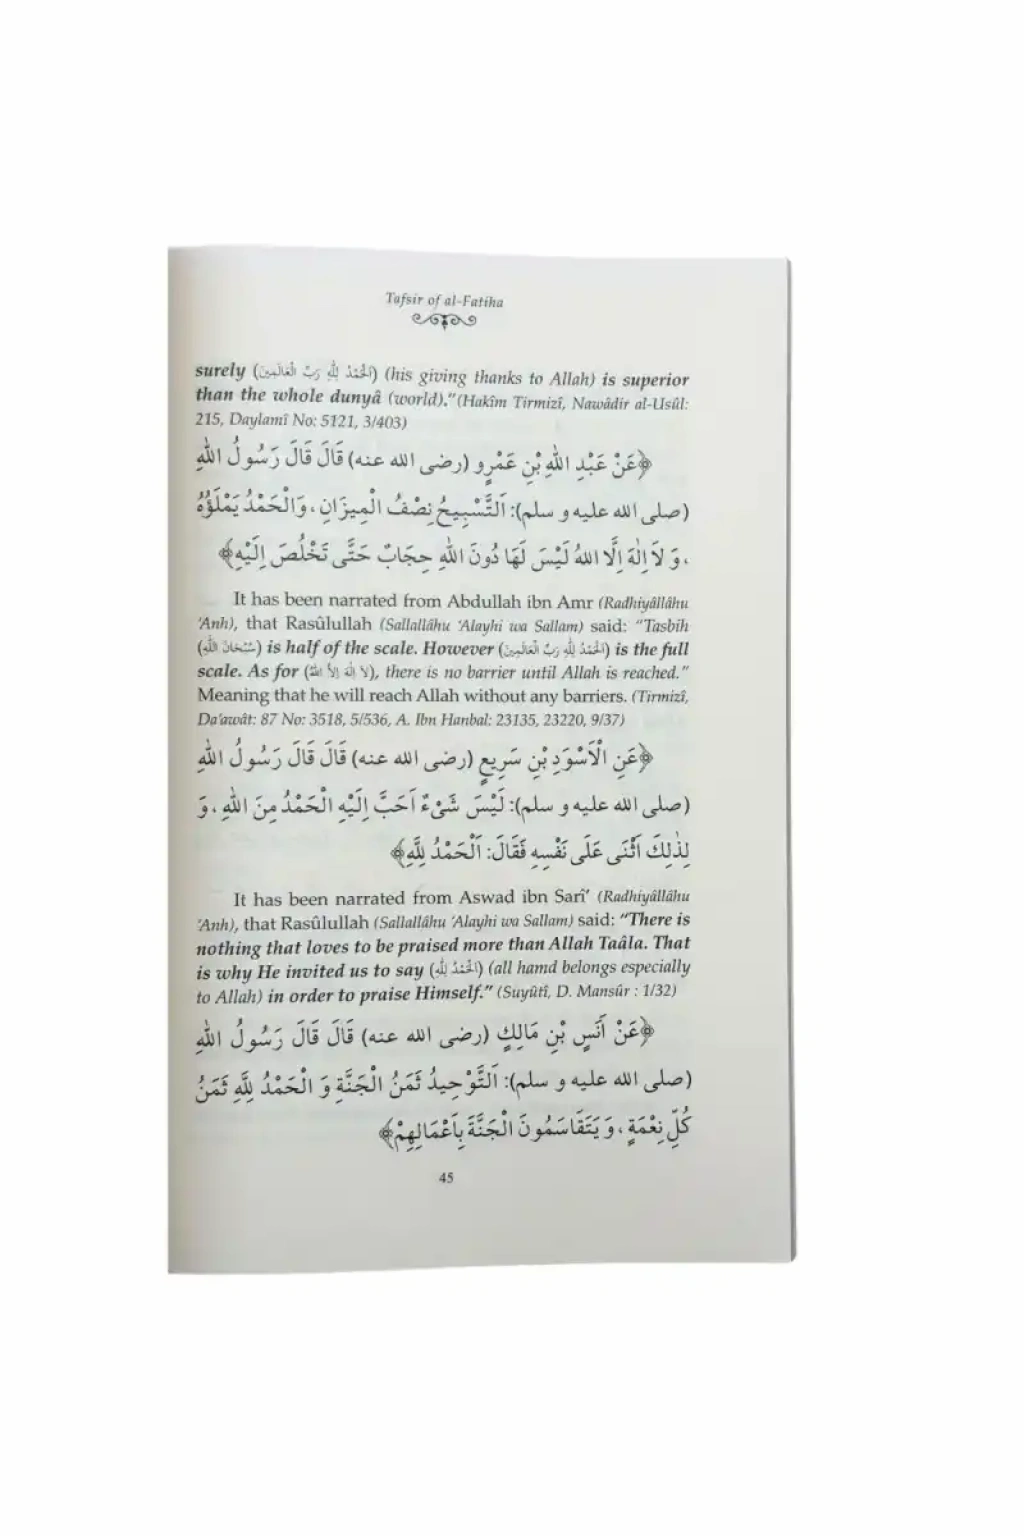 Tafsir of al-Fatiha
surely (اَلْحَمْدُ لِلّٰهِ رَبِّ الْعَالَمِينَ) (his giving thanks to Allah) is superior
than the whole dunyâ (world)."(Hakîm Tirmizî, Nawâdir al-Usûl:
215, Daylamî No: 5121, 3/403)
﴿عَنْ عَبْدِ اللّٰهِ بْنِ عَمْرٍو (رضى الله عنه) قَالَ قَالَ رَسُولُ اللّٰهِ
(صلى الله عليه و سلم): اَلتَّسْبِيحُ نِصْفُ الْمِيزَانِ، وَالْحَمْدُ يَمْلَؤُهُ
، وَ لاَ اِلٰهَ اِلَّا اللهُ لَيْسَ لَهَا دُونَ اللّٰهِ حِجَابٌ حَتَّى تَخْلُصَ اِلَيْهِ﴾
It has been narrated from Abdullah ibn Amr (Radhiyâllâhu
'Anh), that Rasûlullah (Sallallâhu 'Alayhi wa Sallam) said: "Tasbih
(سُبْحَانَ اللّٰهِ) is half of the scale. However (اَلْحَمْدُ لِلّٰهِ رَبِّ الْعَالَمِينَ) is the full
scale. As for (لاَ اِلٰهَ اِلاَّ اللّٰهُ), there is no barrier until Allah is reached."
Meaning that he will reach Allah without any barriers. (Tirmizî,
Da'awât: 87 No: 3518, 5/536, A. Ibn Hanbal: 23135, 23220, 9/37)
﴿عَنِ الْاَسْوَدِ بْنِ سَرِيعٍ (رضى الله عنه) قَالَ قَالَ رَسُولُ اللّٰهِ
(صلى الله عليه و سلم): لَيْسَ شَىْءٌ اَحَبَّ اِلَيْهِ الْحَمْدُ مِنَ اللّٰهِ ، وَ
لِذٰلِكَ اَثْنَى عَلَى نَفْسِهِ فَقَالَ: اَلْحَمْدُ لِلَّهِ﴾
It has been narrated from Aswad ibn Sarî' (Radhiyâllâhu
'Anh), that Rasûlullah (Sallallâhu 'Alayhi wa Sallam) said: "There is
nothing that loves to be praised more than Allah Taâla. That
is why He invited us to say (اَلْحَمْدُ لِلّٰهِ) (all hamd belongs especially
to Allah) in order to praise Himself." (Suyûtî, D. Mansûr : 1/32)
﴿عَنْ أَنَسِ بْنِ مَالِكٍ (رضى الله عنه) قَالَ قَالَ رَسُولُ اللّٰهِ
(صلى الله عليه و سلم): اَلتَّوْحِيدُ ثَمَنُ الْجَنَّةِ وَ الْحَمْدُ لِلَّهِ ثَمَنُ
كُلِّ نِعْمَةٍ ، وَ يَتَقَاسَمُونَ الْجَنَّةَ بِاَعْمَالِهِمْ﴾
45